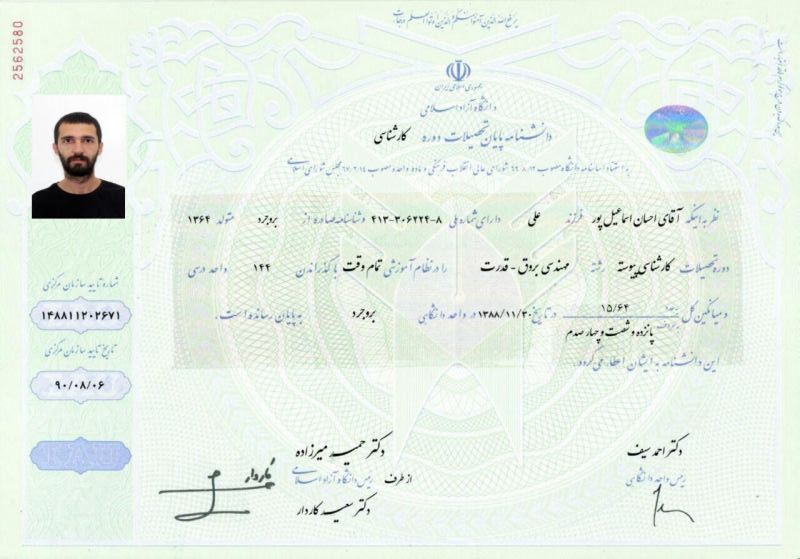 یرفع الله الذین آمنوا منکم والذین اوتوا العلم درجات
2562580
جمهوری اسلامی ایران
دانشگاه آزاد اسلامی
دانشنامه پایان تحصیلات دوره کارشناسی
به استناد اساسنامه دانشگاه مصوب ۶۶/۸/۱۲ شورای عالی انقلاب فرهنگی و ماده واحده مصوب ۶۷/۲/۱۴ مجلس شورای اسلامی
نظر به اینکه آقای احسان اسماعیل پور فرزند علی دارای شماره ملی ۴۱۳-۳۰۶۲۲۴-۸ و شناسنامه صادره از بروجرد متولد ۱۳۶۴
دوره تحصیلات کارشناسی پیوسته رشته مهندسی برق - قدرت را در نظام آموزشی تمام وقت با گذراندن ۱۴۴ واحد درسی
و میانگین کل بعدد ۱۵/۶۴ بحروف پانزده و شصت و چهار صدم در تاریخ ۱۳۸۸/۱۱/۳۰ در واحد دانشگاهی بروجرد به پایان رسانده است.
این دانشنامه به ایشان اعطا می گردد.
شماره تایید سازمان مرکزی
۱۴۸۸۱۱۲۰۲۶۷۱
تاریخ تایید سازمان مرکزی
۹۰/۰۸/۰۶
دکتر احمد سیف
رئیس واحد دانشگاهی
دکتر حمید میرزاده
رئیس دانشگاه آزاد اسلامی
از طرف
دکتر سعید کاردار